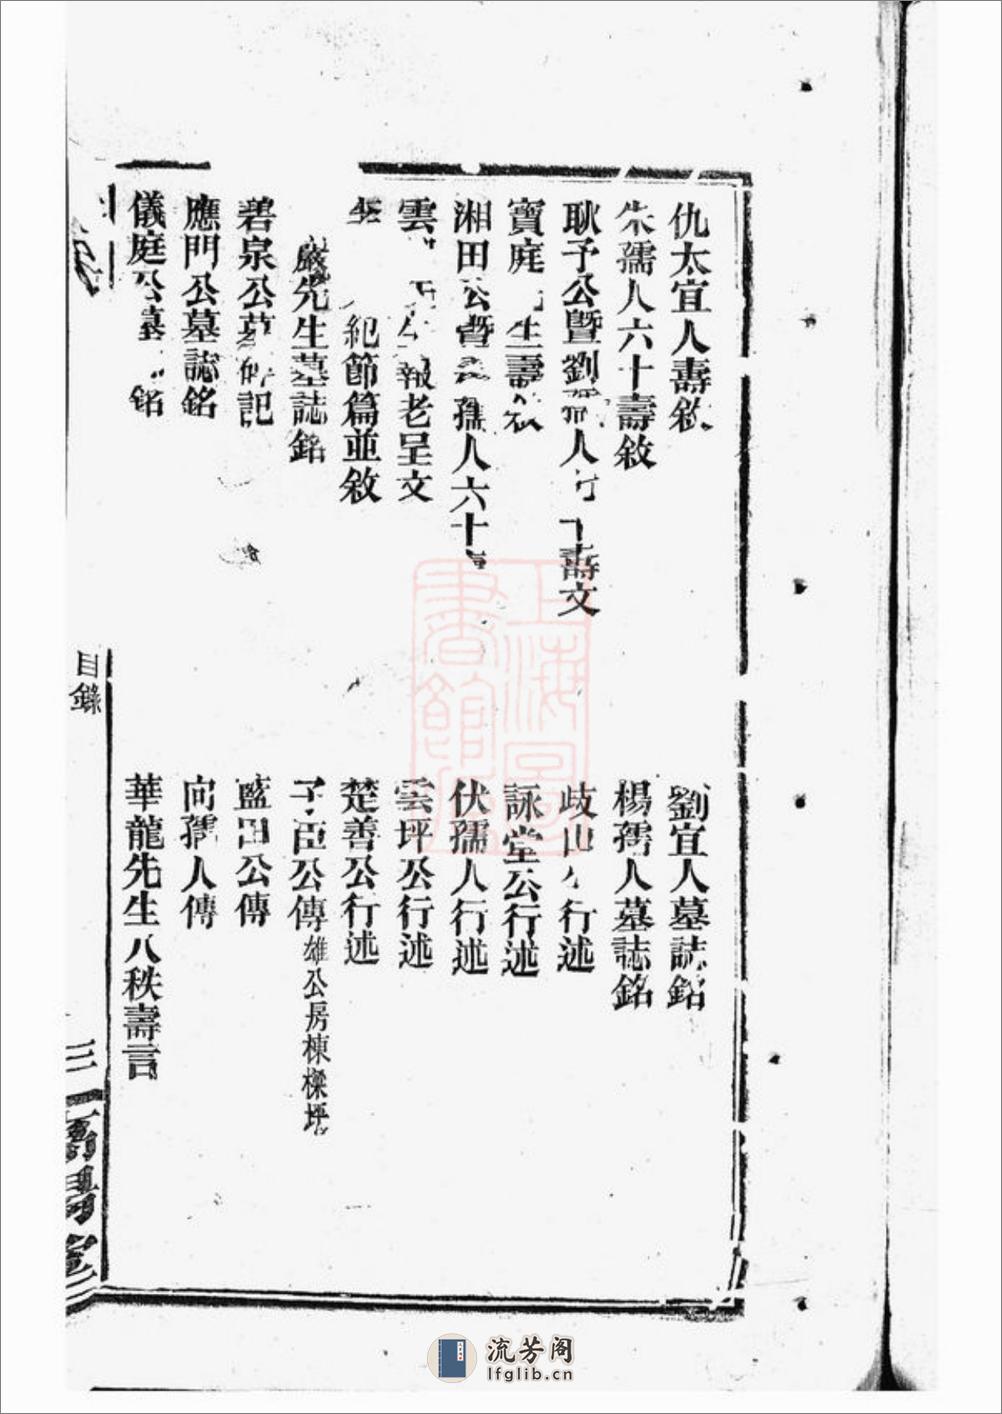 仇太宜人壽敘
朱孺人六十壽敘
耿予公暨劉孺人壽文
寶庭生壽敘
湘田公暨孺人六十
雲報老呈文
紀節篇並敘
嚴先生墓誌銘
碧泉公墓碑記
應門公墓誌銘
儀庭公墓銘
劉宜人墓誌銘
楊孺人墓誌銘
歧山行述
詠堂公行述
伏孺人行述
雲坪公行述
楚善公行述
臣公傳雄公房棟樑坪
藍田公傳
向孺人傳
華龍先生八秩壽言
目錄
三
上海圖書館藏
流芳阁
lfglib.cn